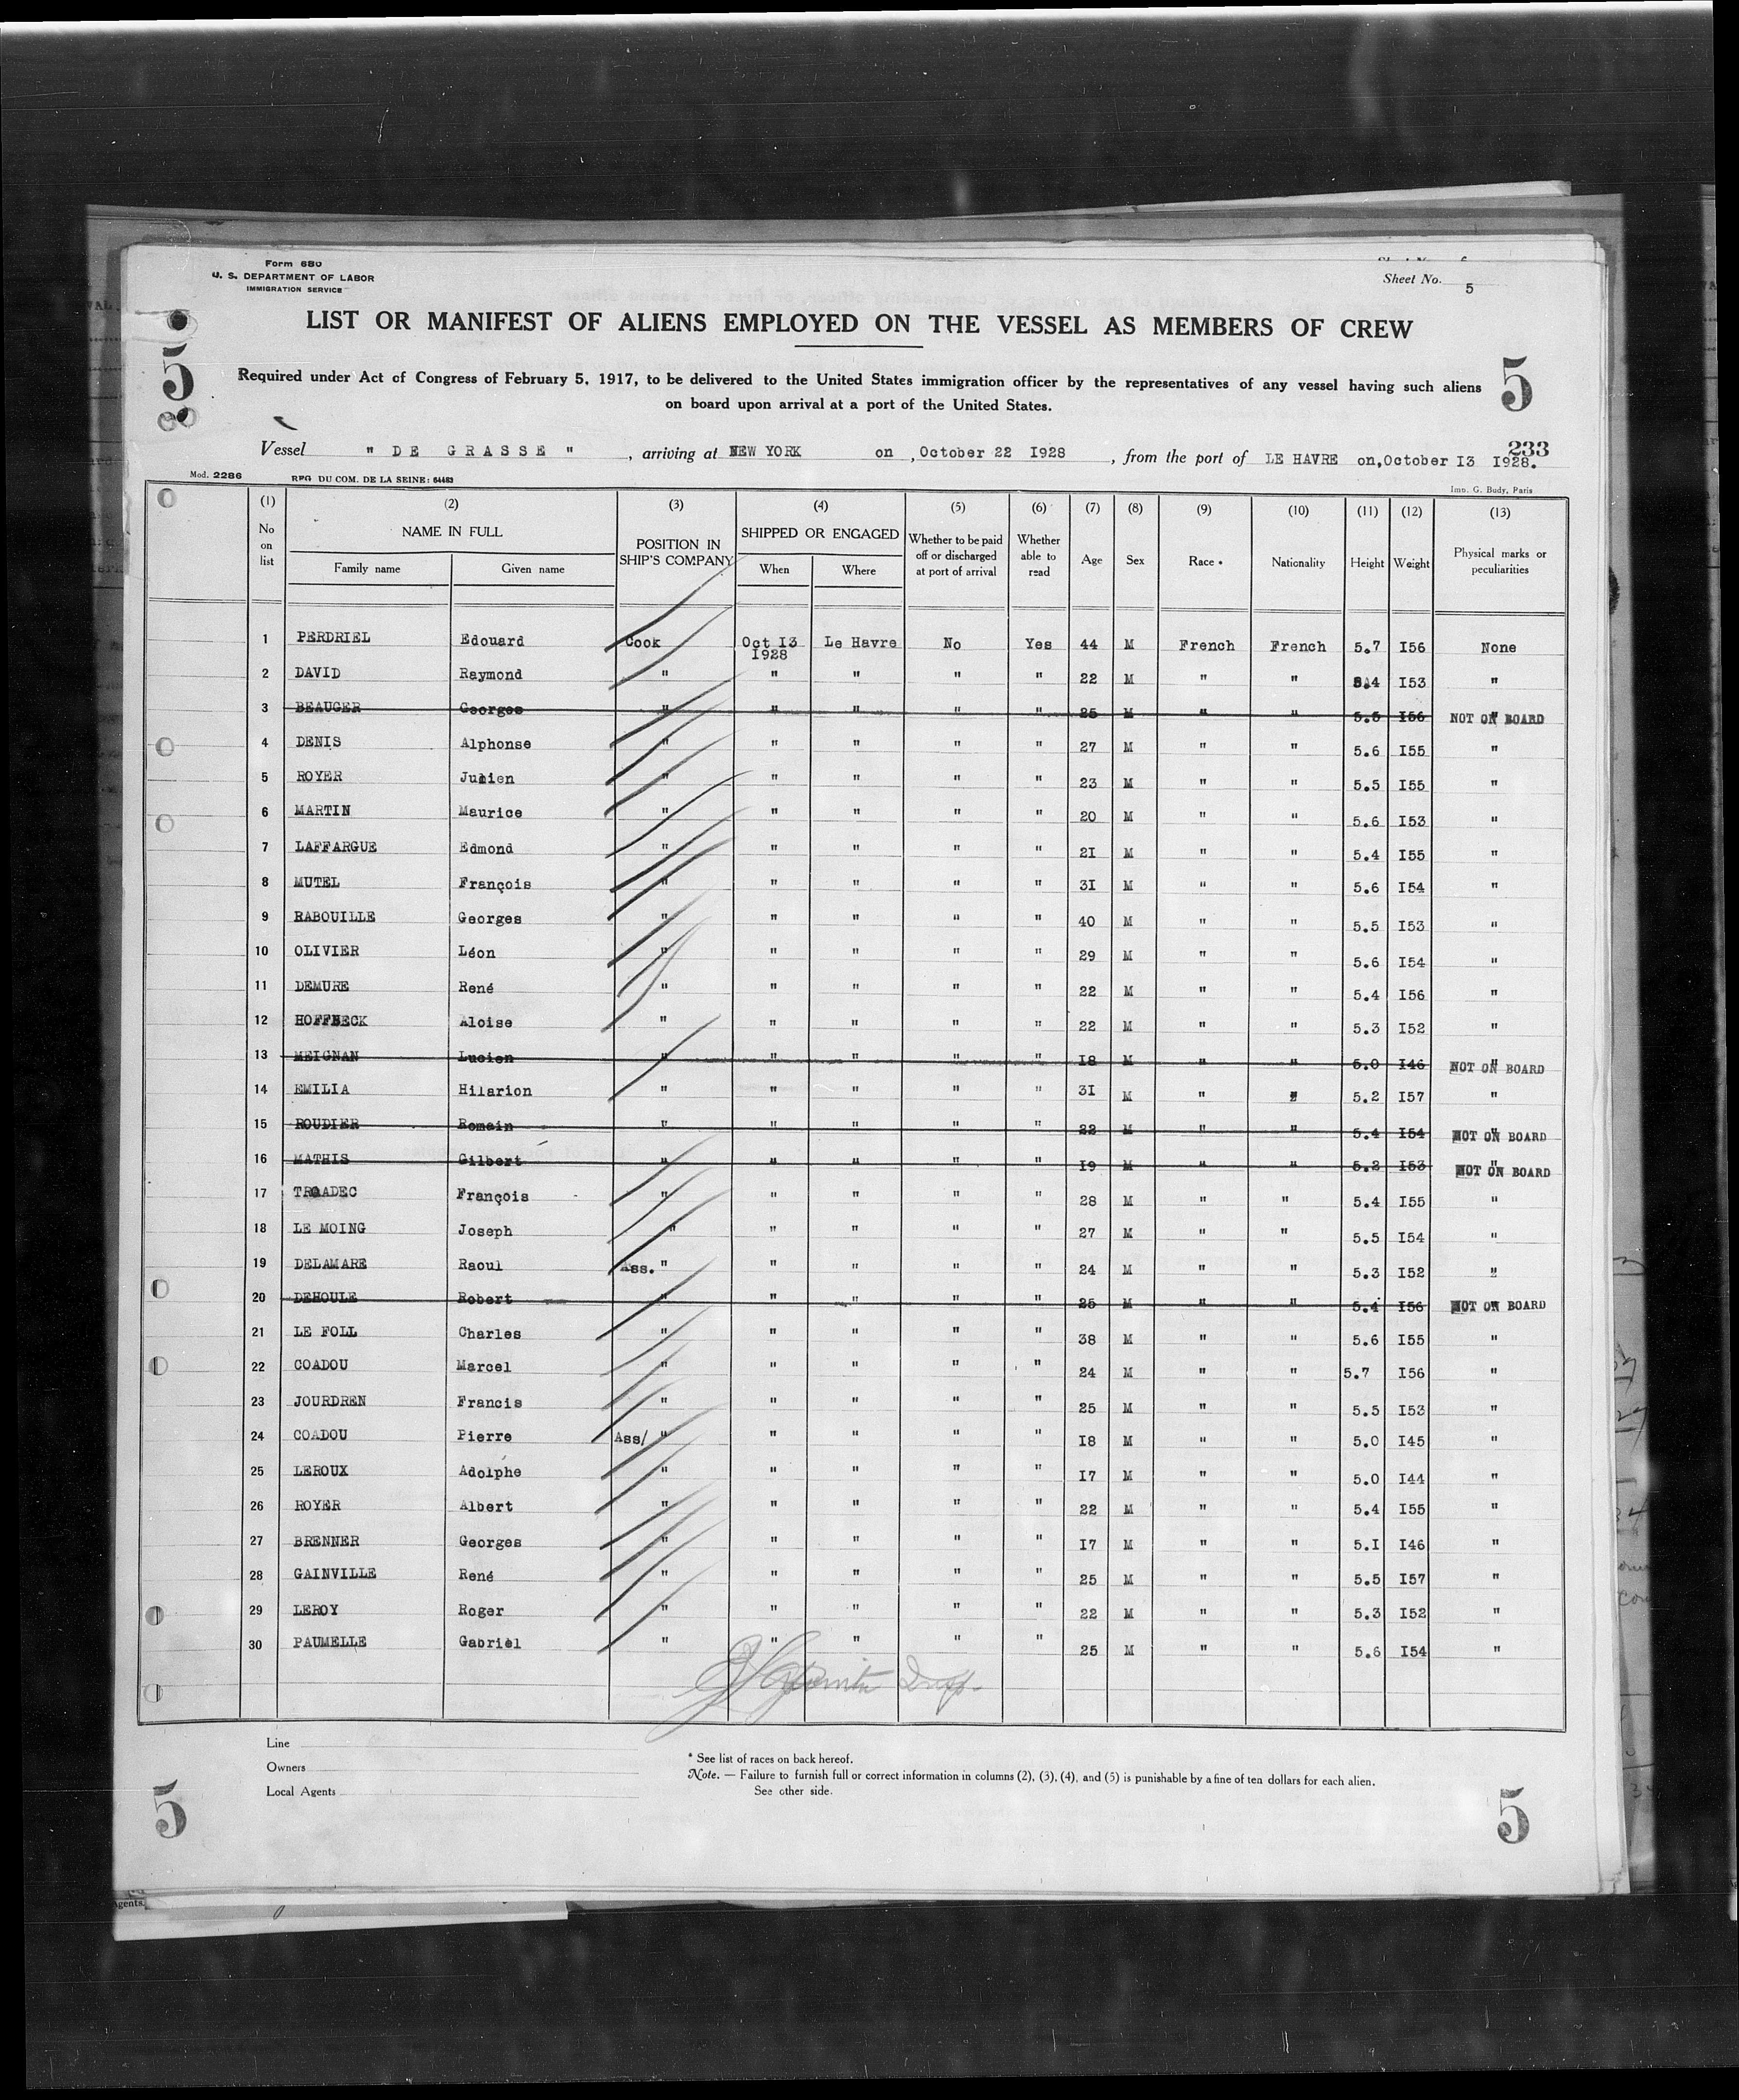 Form 680
U. S. DEPARTMENT OF LABOR
IMMIGRATION SERVICE
Sheet No. 5
LIST OR MANIFEST OF ALIENS EMPLOYED ON THE VESSEL AS MEMBERS OF CREW
5
5
Required under Act of Congress of February 5, 1917, to be delivered to the United States immigration officer by the representatives of any vessel having such aliens
on board upon arrival at a port of the United States.
233
Vessel " DE GRASSE " , arriving at NEW YORK on , October 22 I928 , from the port of LE HAVRE on, October I3 I928.
Mod. 2286 REG DU COM. DE LA SEINE: 64483 Imp. G. Budy, Paris
(1) (2) (3) (4) (5) (6) (7) (8) (9) (10) (11) (12) (13)
No on list NAME IN FULL Family name Given name POSITION IN SHIP'S COMPANY SHIPPED OR ENGAGED When Where Whether to be paid off or discharged at port of arrival Whether able to read Age Sex Race * Nationality Height Weight Physical marks or peculiarities
1 PERDRIEL Edouard Cook Oct I3 I928 Le Havre No Yes 44 M French French 5.7 I56 None
2 DAVID Raymond " " " " " 22 M " " 5.4 I53 "
3 BEAUGER Georges " " " " " 25 M " " 5.5 I56 " NOT ON BOARD
4 DENIS Alphonse " " " " " 27 M " " 5.6 I55 "
5 ROYER Julien " " " " " 23 M " " 5.5 I55 "
6 MARTIN Maurice " " " " " 20 M " " 5.6 I53 "
7 LAFFARGUE Edmond " " " " " 2I M " " 5.4 I55 "
8 MUTEL François " " " " " 3I M " " 5.6 I54 "
9 RABOUILLE Georges " " " " " 40 M " " 5.5 I53 "
10 OLIVIER Léon " " " " " 29 M " " 5.6 I54 "
11 DEMURE René " " " " " 22 M " " 5.4 I56 "
12 HOFFBECK Aloise " " " " " 22 M " " 5.3 I52 "
13 MEIGNAN Lucien " " " " " I8 M " " 5.0 I46 " NOT ON BOARD
14 EMILIA Hilarion " " " " " 3I M " " 5.2 I57 "
15 ROUDIER Romain " " " " " 22 M " " 5.4 I54 " NOT ON BOARD
16 MATHIS Gilbert " " " " " I9 M " " 5.2 I53 " NOT ON BOARD
17 TROADEC François " " " " " 28 M " " 5.4 I55 "
18 LE MOING Joseph " " " " " 27 M " " 5.5 I54 "
19 DELAMARE Raoul Ass. " " " " " 24 M " " 5.3 I52 "
20 DEHOULE Robert " " " " " 25 M " " 5.4 I56 NOT ON BOARD
21 LE FOLL Charles " " " " " 38 M " " 5.6 I55 "
22 COADOU Marcel " " " " " 24 M " " 5.7 I56 "
23 JOURDREN Francis " " " " " 25 M " " 5.5 I53 "
24 COADOU Pierre Ass/ " " " " " I8 M " " 5.0 I45 "
25 LEROUX Adolphe " " " " " I7 M " " 5.0 I44 "
26 ROYER Albert " " " " " 22 M " " 5.4 I55 "
27 BRENNER Georges " " " " " I7 M " " 5.I I46 "
28 GAINVILLE René " " " " " 25 M " " 5.5 I57 "
29 LEROY Roger " " " " " 22 M " " 5.3 I52 "
30 PAUMELLE Gabriel " " " " " 25 M " " 5.6 I54 "
Line
Owners
Local Agents
* See list of races on back hereof.
Note. — Failure to furnish full or correct information in columns (2), (3), (4), and (5) is punishable by a fine of ten dollars for each alien.
See other side.
5
5
Agents.